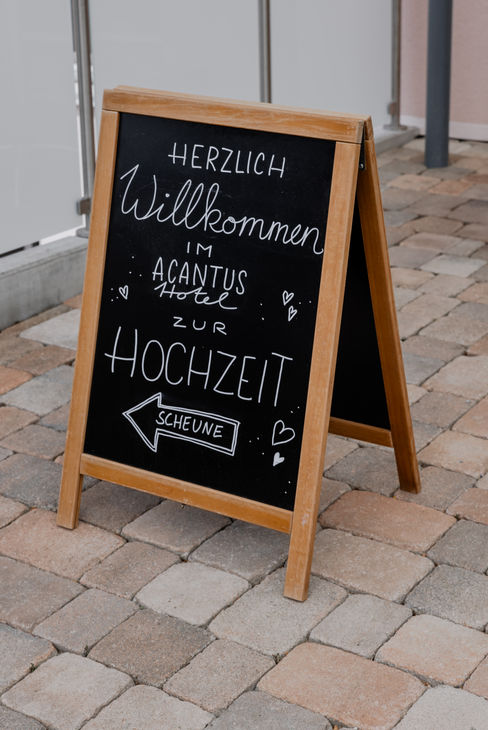 HERZLICH
Willkommen
IM
ACANTUS
Hotel
ZUR
HOCHZEIT
SCHEUNE